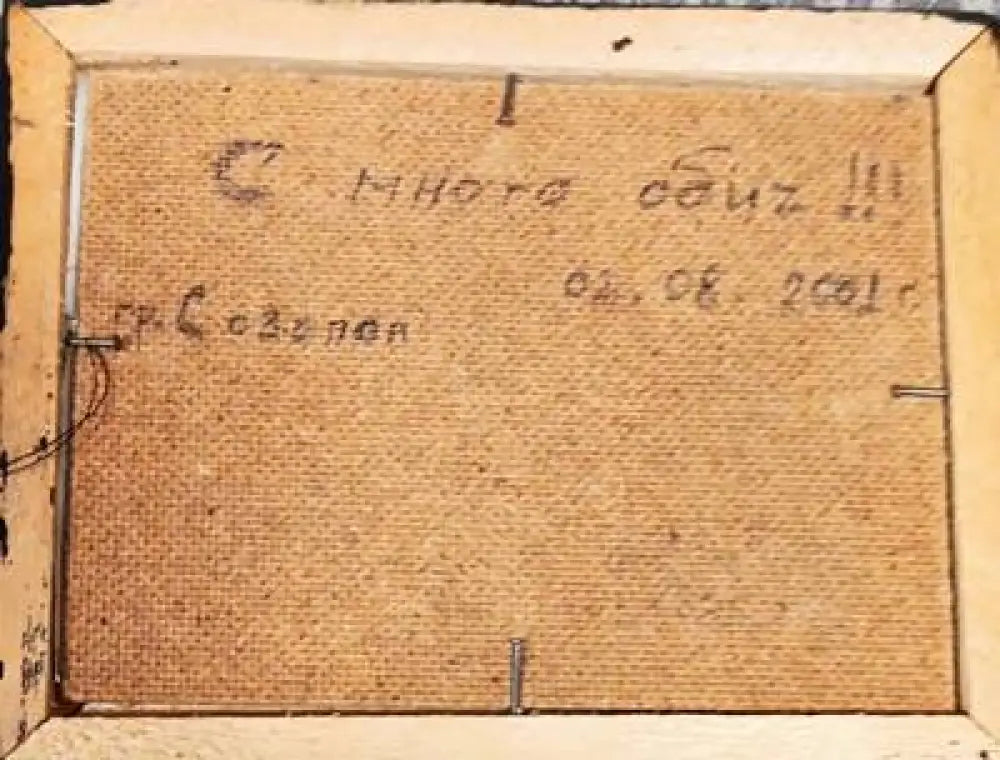 С много обич !!!
02. 08. 2001 г.
гр. Созопол